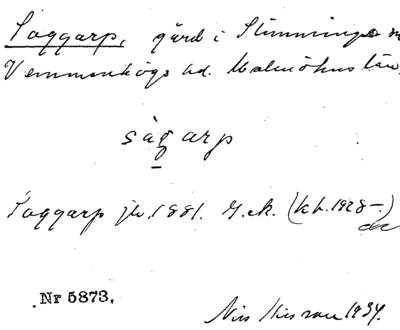 Saggarp, gård i Slimminge
Vemmenhögs hd. Malmöhus län.
sagarp
Saggarp jb. 1881. G.ek. (kb. 1928-)
Nr 5873.
Nils 1934.